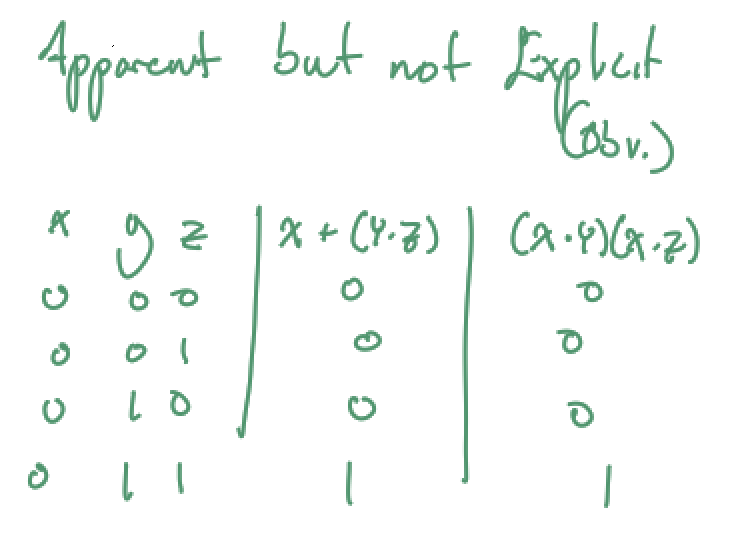 Apparent but not Explicit
(Obv.)
x y z | x + (y·z) | (x·y)(x·z)
0 0 0 | 0 | 0
0 0 1 | 0 | 0
0 1 0 | 0 | 0
0 1 1 | 1 | 1